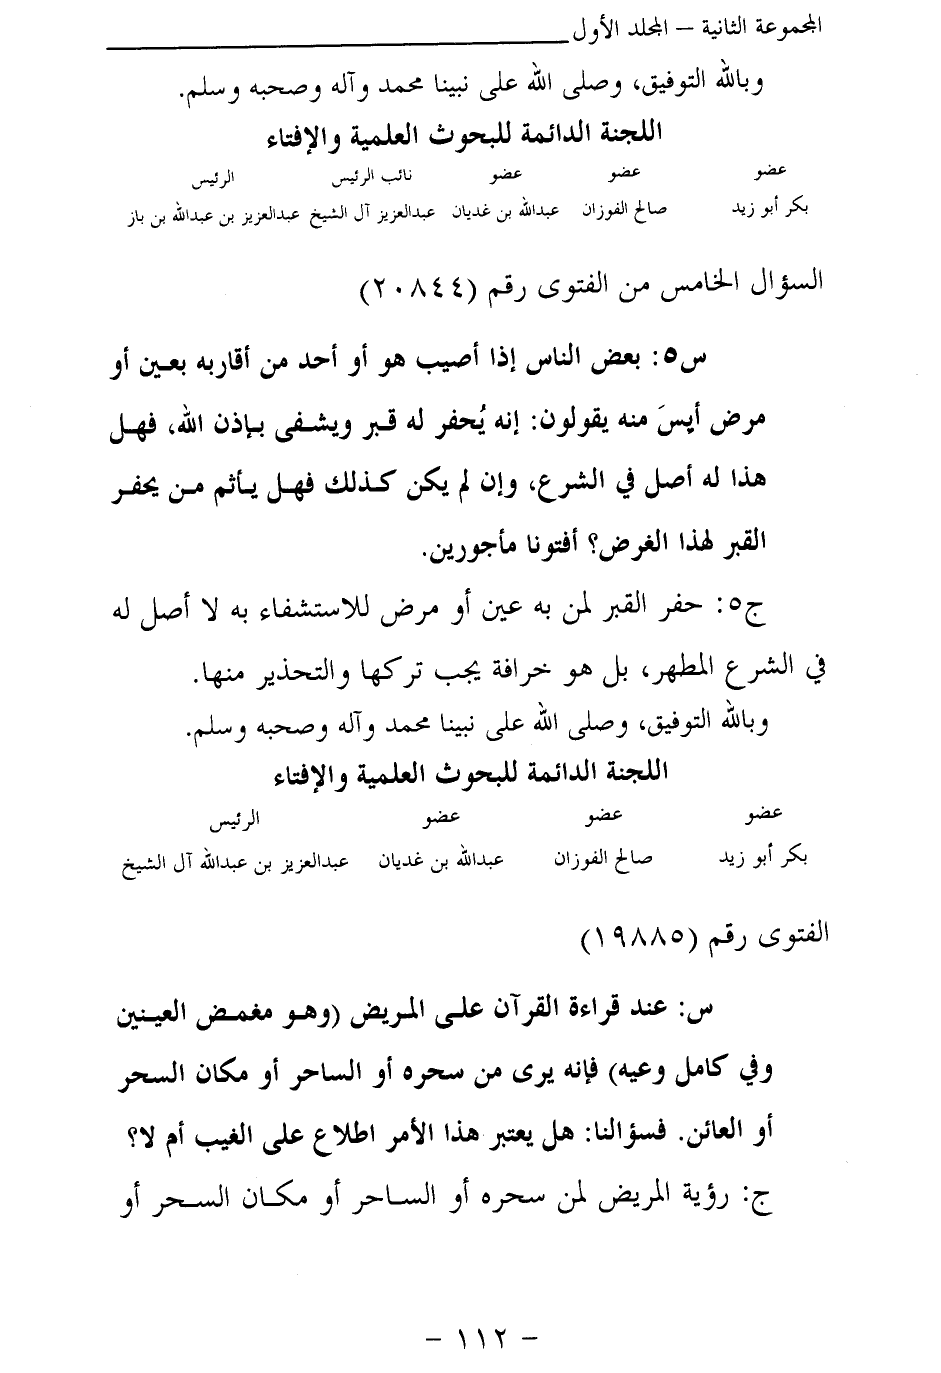 المجموعة الثانية – المجلد الأول
وبالله التوفيق، وصلى الله على نبينا محمد وآله وصحبه وسلم.
اللجنة الدائمة للبحوث العلمية والإفتاء
عضو عضو عضو نائب الرئيس الرئيس
بكر أبو زيد صالح الفوزان عبدالله بن غديان عبدالعزيز آل الشيخ عبدالعزيز بن عبدالله بن باز
السؤال الخامس من الفتوى رقم (٢٠٨٤٤)
س٥: بعض الناس إذا أصيب هو أو أحد من أقاربه بعين أو
مرض أيسَ منه يقولون: إنه يُحفر له قبر ويشفى بإذن الله، فهل
هذا له أصل في الشرع، وإن لم يكن كذلك فهل يأثم من يحفر
القبر لهذا الغرض؟ أفتونا مأجورين.
ج٥: حفر القبر لمن به عين أو مرض للاستشفاء به لا أصل له
في الشرع المطهر، بل هو خرافة يجب تركها والتحذير منها.
وبالله التوفيق، وصلى الله على نبينا محمد وآله وصحبه وسلم.
اللجنة الدائمة للبحوث العلمية والإفتاء
عضو عضو عضو الرئيس
بكر أبو زيد صالح الفوزان عبدالله بن غديان عبدالعزيز بن عبدالله آل الشيخ
الفتوى رقم (١٩٨٨٥)
س: عند قراءة القرآن على المريض (وهو مغمض العينين
وفي كامل وعيه) فإنه يرى من سحره أو الساحر أو مكان السحر
أو العائن. فسؤالنا: هل يعتبر هذا الأمر اطلاع على الغيب أم لا؟
ج: رؤية المريض لمن سحره أو الساحر أو مكان السحر أو
– ١١٢ –